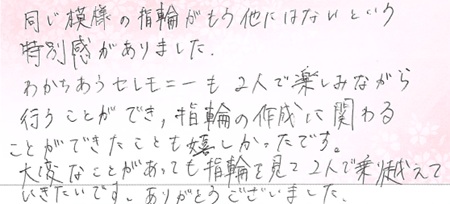 同じ模様の指輪がもう他にはないという
特別感がありました.
わかちあうセレモニーも2人で楽しみながら
行うことができ,指輪の作成に関わる
ことができたことも嬉しかったです。
大変なことがあっても指輪を見て2人で乗り越えて
いきたいです。ありがとうございました.